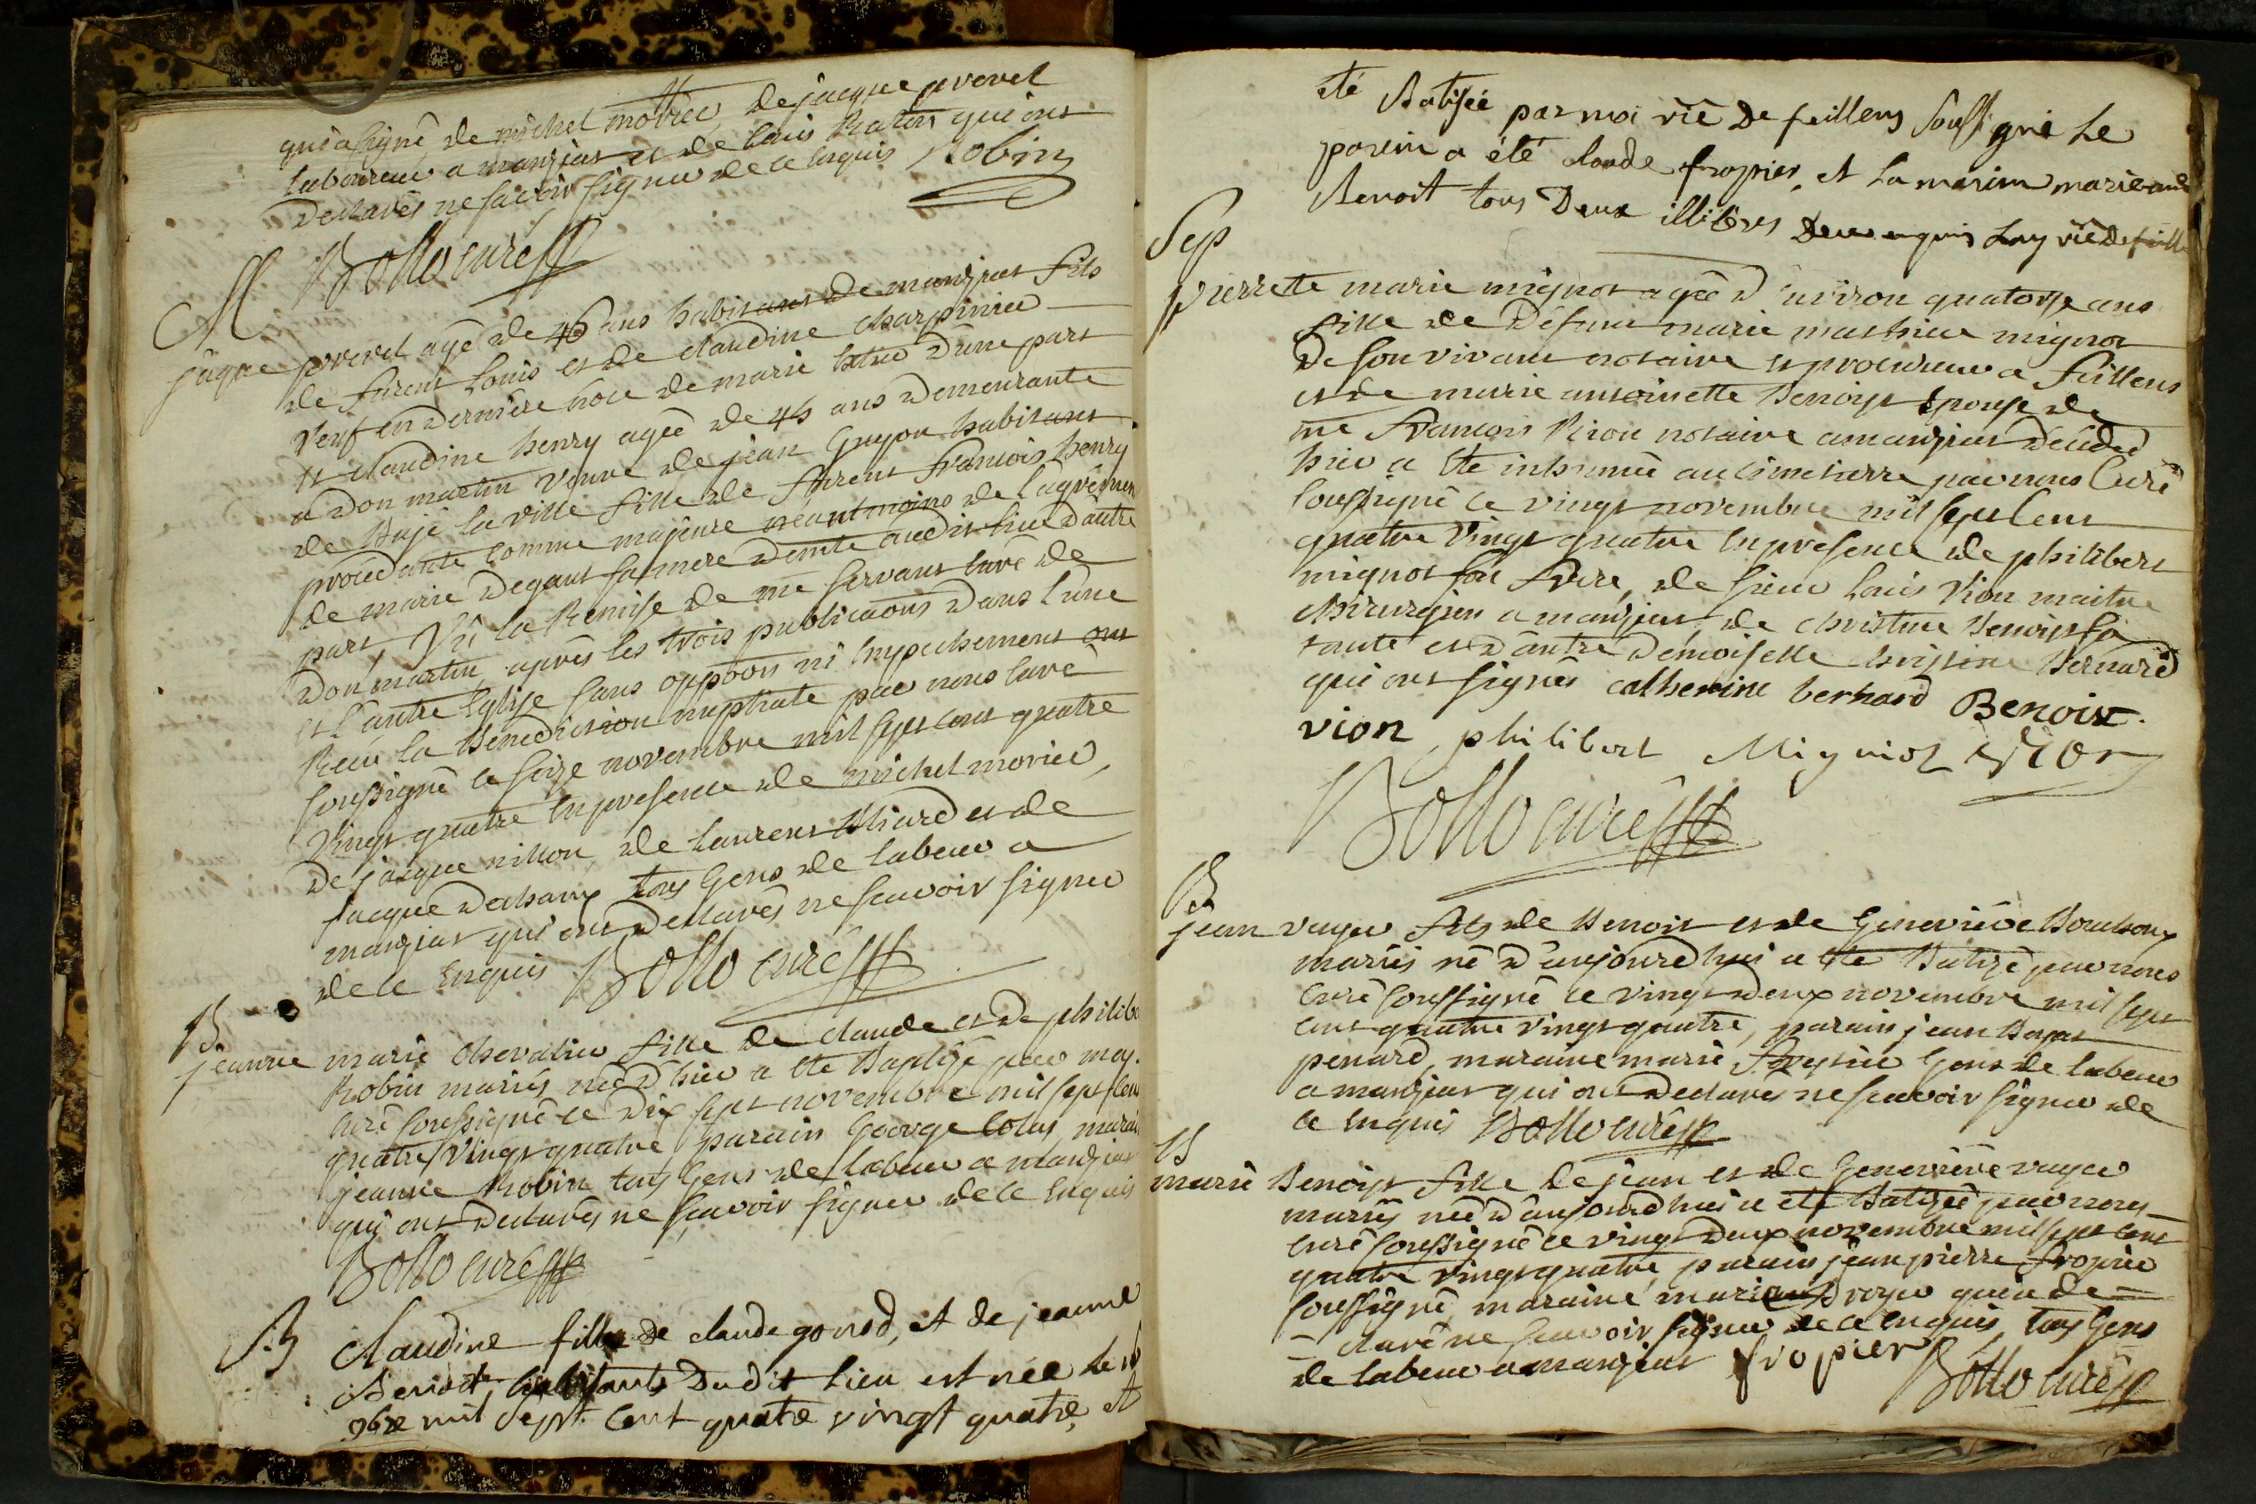 qui a signé de michel morier, de jacque prevel
laboureur a manziat et de louis Ratin qui ont
declarés ne scavoir signer de ce enquis Robin
Bollo curé
M
jaque prevel agé de 46 ans habitant de manziat fils
de furent Louis et de claudine charpinier
veuf en derniere noce de marie d'une part
et claudine henry agée de 45 ans demeurante
a don martin veuve de jean Guyon habitant
de Bajé la ville fille de furent francois henry
procedante comme majeure neantmoins de l'agrémen
de marie Degaut sa mere demte audit lieu d'autre
part, Vû la Remise de me servant curé de
Don martin, aprés les trois publicaons dans l'une
et l'autre Eglise sans oppoon ni Empechement ont
Recu la Benediction nuptiale par nous curé
soussigné ce seize novembre mil sept cent quatre
Vingt quatre en presence de michel morier,
de jacque nillon, de Laurent Bliard et de
jacque Dechaux tous Gens de labeur a
manziat qui ont declarés ne scavoir signer
de ce Enquis Bollo curé
B
jeanne marie chevalier fille de claude et de philibe
Robin mariés née d'hier a ete Baptisé par moy
curé soussigné ce dix sept novembre mil sept cen
quatre Vingt quatre parain George Colas marai
jeanne Robin tous Gens de labeur a manziat
qui ont declarés ne scavoir signer de ce Enquis
Bollo curé
B
Claudine fille de claude gonod, et de jeanne
Benoit, habitants dudit lieu est née le
9bre mil sept cent quatre vingt quatre, et
été Batisée par moi vic de feillens soussigné le
parein a été claude fropier, et la marine marie
Benoit tous deux illiteres de ce enquis vic de feille
Sep
pierrette marie mignot agée d'environ quatorze ans
fille de Défunt marie mathieu mignot
de son vivant notaire et procureur a feillens
et de marie antoinette Benoist Epouse de
me francois Piron notaire a manziat decedée
hier a ete inhumée au cimetierre par nous Curé
soussigné ce vingt novembre mil sept Cent
quatre Vingt quatre en présence de philibert
mignot son frere, de sieur Louis Vion maitre
chirurgien a manziat, de christine Benoist sa
tante et d'autre Demoiselle Christine Bernard
qui ont signés catherine bernard Benoist
vion philibert Migniot
Bollo curé
B
jean voyer fils de Benoit et de Genevieve Bourdon
mariés né d'aujourd'hui a ete Batizé par nous
curé soussigné ce vingt deux novembre mil sept
cent quatre vingt quatre, parain jean
penard, maraine marie Gens de labeur
a manziat qui ont declarés ne scavoir signer de
ce enquis Bollo curé
B
marie Benoist fille de jean et de Genevieve voyer
mariés née d'aujourd'hui a eté Batizée par nous
curé soussigné ce vingt deux novembre mil sept cent
quatre vingt quatre, parain jean pierre fropier
soussigné maraine voyer qui a de=
=claré ne scavoir signer de ce enquis, tous Gens
de labeur a manziat fropier
Bollo curé